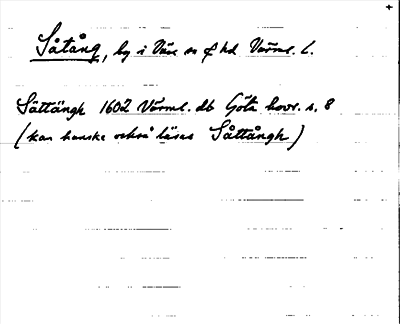 Såtång, by i Väse sn f hd Värml. l.
Sättängh 1602 Värml. db Göta hovr. s. 8
(kan kanske också läsas Såttångh)